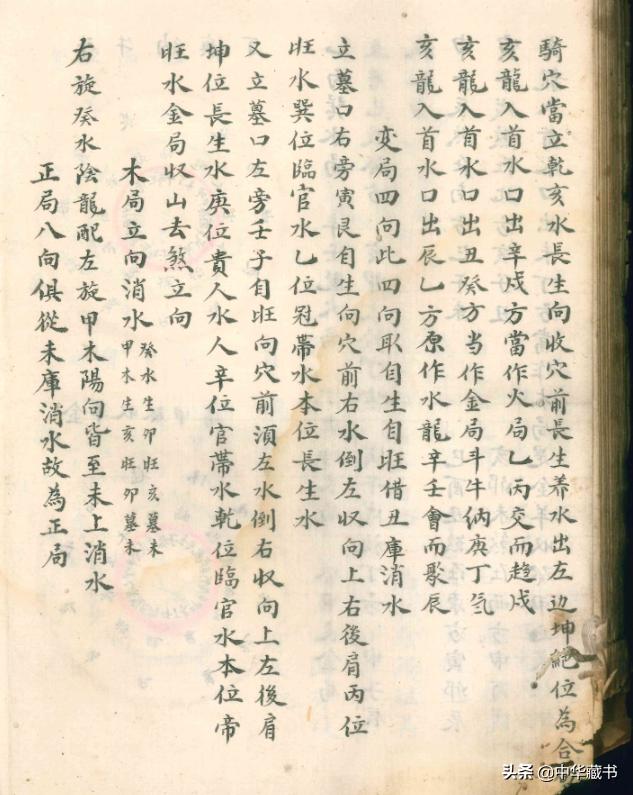 騎穴當立乾亥水長生向收穴前長生养水出左边坤絕位為合
亥龍入首水口出辛戍方當作火局乙丙交而趋戍
亥龍入首水口出丑癸方当作金局斗牛纳庚丁气
亥龍入首水口出辰乙方原作水龍辛壬會而聚辰
变局四向此四向取自生自旺借丑庫消水
立墓口右旁寅艮自生向穴前右水倒左収向上右後肩丙位
旺水巽位臨官水乙位冠帶水本位長生水
又立墓口左旁壬子自旺向穴前須左水倒右収向上左後肩
坤位長生水庚位貴人水人辛位官帶水乾位臨官水本位帝
旺水金局収山去煞立向
木局立向消水
癸水生卯旺亥墓未
甲木生亥旺卯墓未
右旋癸水陰龍配左旋甲木陽向皆至未上消水
正局八向俱從未庫消水故為正局
头条 @中华藏书